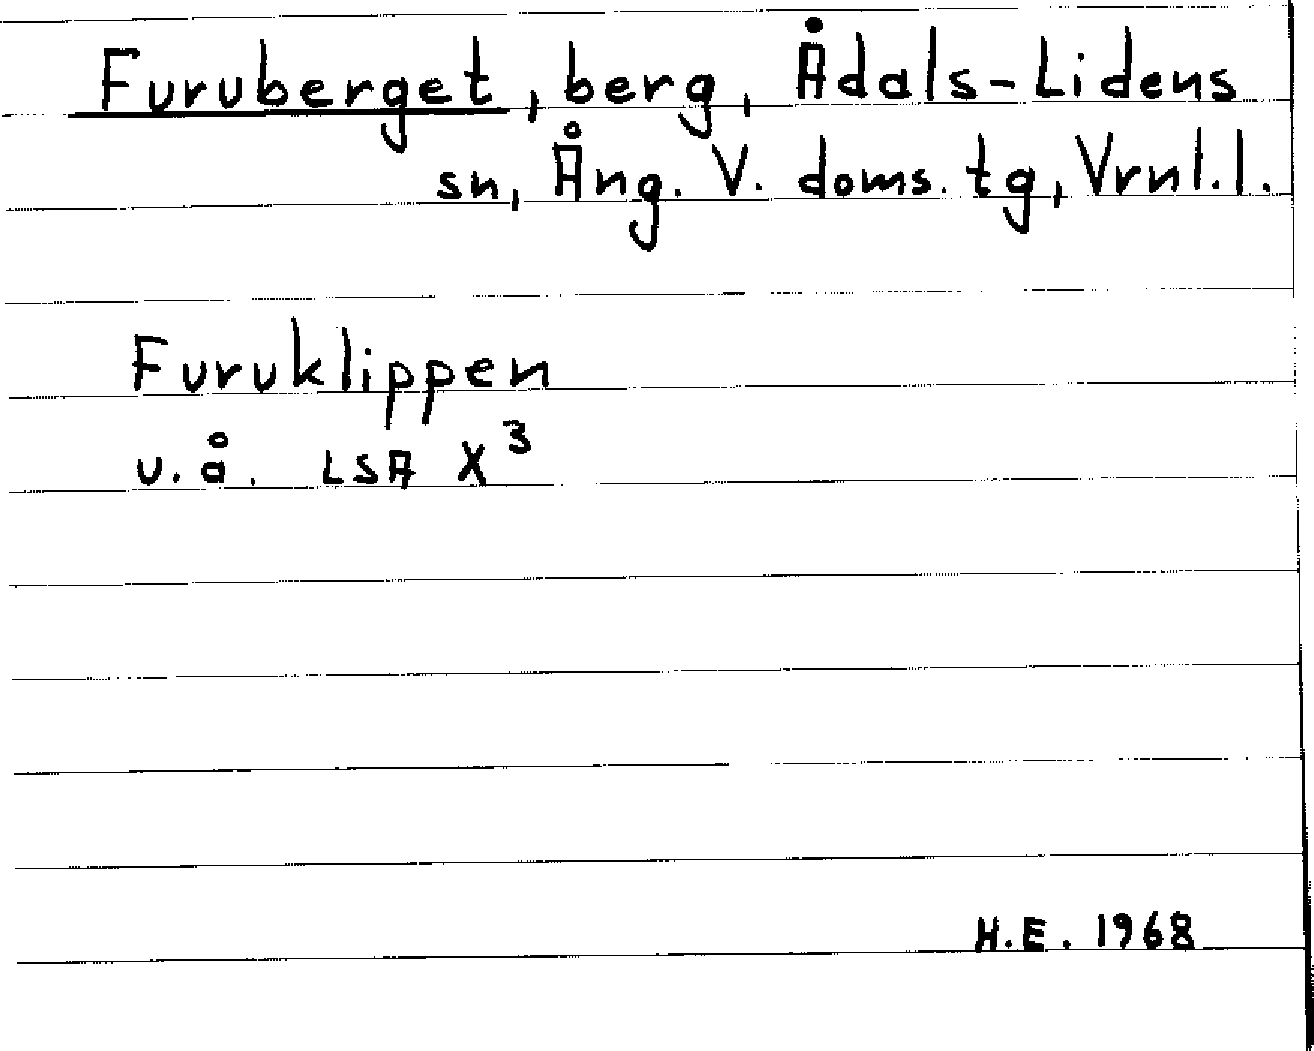 Furuberget, berg, Ådals-Lidens
sn, Ång. V. doms. tg, Vrnl.l.
Furuklippen
u.å. LSA X³
H.E. 1968